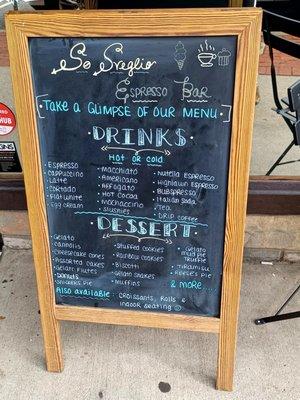 So Sveglio
Espresso
Bar
Take a glimpse of our menu
DRINKS
Hot or cold
Espresso
Cappuccino
Latte
Cortado
Flat white
Egg cream
Macchiato
Americano
Affogato
Hot Cocoa
Mochaccino
Slushies
Nutella Espresso
Espresso
Espresso
Italian Soda
Tea
Drip coffee
DESSERT
Gelato
Cannolis
Cheesecake Cones
Assorted Cakes
Gelato Flutes
Donuts
Snickers Pie
Stuffed cookies
Rainbow cookies
Biscotti
Gelato Cookies
Muffins
Gelato
Mud pie
Truffle
Tiramisu
Reese's Pie
& more
Also available:
Croissants, Rolls &
indoor seating
HUB